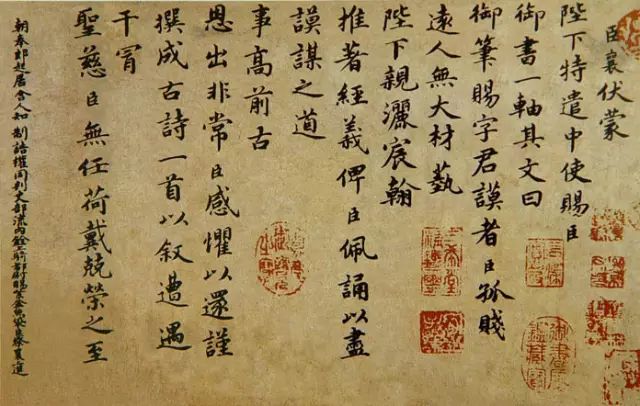 臣襄伏蒙
陛下特遣中使賜臣
御書一軸其文曰
御筆賜字君謨者臣孤賤
遠人無大材藝
陛下親灑宸翰
推著經義俾臣佩誦以盡
謨謀之道
事高前古
恩出非常臣感懼以還謹
撰成古詩一首以敘遭遇
干冐
聖慈臣無任荷戴兢榮之至
朝奉郎起居舍人知制誥權同判吏部流內銓上騎都尉賜紫金魚袋蔡襄進